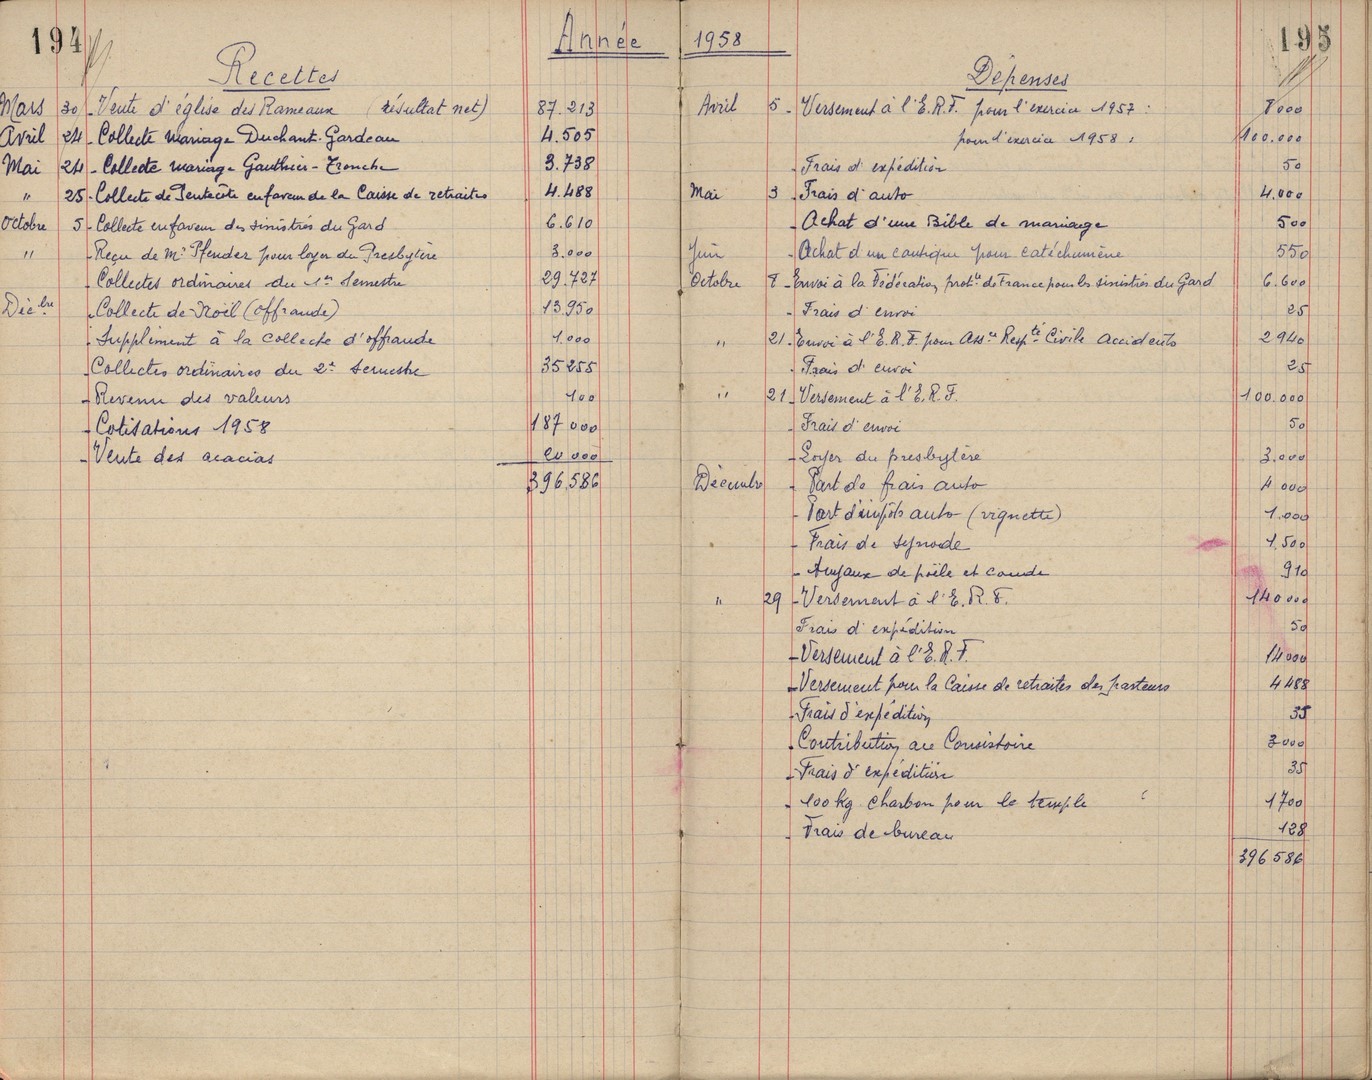 194
Année
Recettes
Mars 30 - Vente d'église des Rameaux (résultat net) 87.213
Avril 24 - Collecte mariage Duchant-Gardeau 4.505
Mai 24 - Collecte mariage Gauthier-Tronche 3.738
" 25 - Collecte de Pentecôte en faveur de la Caisse de retraites 4.488
Octobre 5 - Collecte en faveur des sinistrés du Gard 6.610
" - Reçu de Mr Pfender pour loyer du Presbytère 3.000
- Collectes ordinaires du 1er Semestre 29.727
Décbre - Collecte de Noël (offrande) 13.950
- Supplément à la collecte d'offrande 1.000
- Collectes ordinaires du 2e Semestre 35255
- Revenu des valeurs 100
- Cotisations 1958 187 000
- Vente des acacias 20 000
396.586
1958
195
Dépenses
Avril 5 - Versement à l'E.R.F. pour l'exercice 1957 : 8000
pour l'exercice 1958 : 100.000
- Frais d'expédition 50
Mai 3 - Frais d'auto 4.000
- Achat d'une Bible de mariage 500
Juin - Achat d'un cantique pour catéchumène 550
Octobre 8 - Envoi à la Fédération prot. de France pour les sinistrés du Gard 6.600
- Frais d'envoi 25
" 21 - Envoi à l'E.R.F. pour Assce Respté Civile Accidents 2940
- Frais d'envoi 25
" 21 - Versement à l'E.R.F. 100.000
- Frais d'envoi 50
- Loyer du presbytère 3.000
Décembre - Part de frais auto 4 000
- Part d'impôts auto (vignette) 1.000
- Frais de synode 1.500
- tuyaux de poêle et coude 910
" 29 - Versement à l'E.R.F. 140000
Frais d'expédition 50
- Versement à l'E.R.F. 14000
- Versement pour la Caisse de retraites des pasteurs 4488
- Frais d'expédition 35
- Contribution au Consistoire 3000
- Frais d'expédition 35
- 100 kg charbon pour le temple 1700
- Frais de bureau 128
396 586